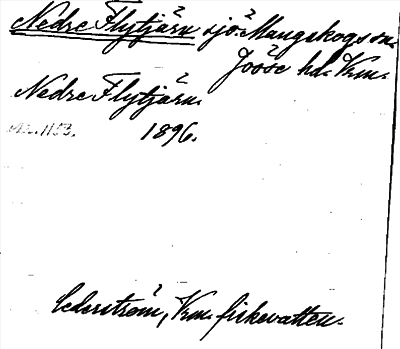 Nedre Flytjärn sjö: Mangskogs sn.
Jösse hd. Vrm.
Nedre Flytjärn.
1896.
Cederström, Vrm. fiskevatten.